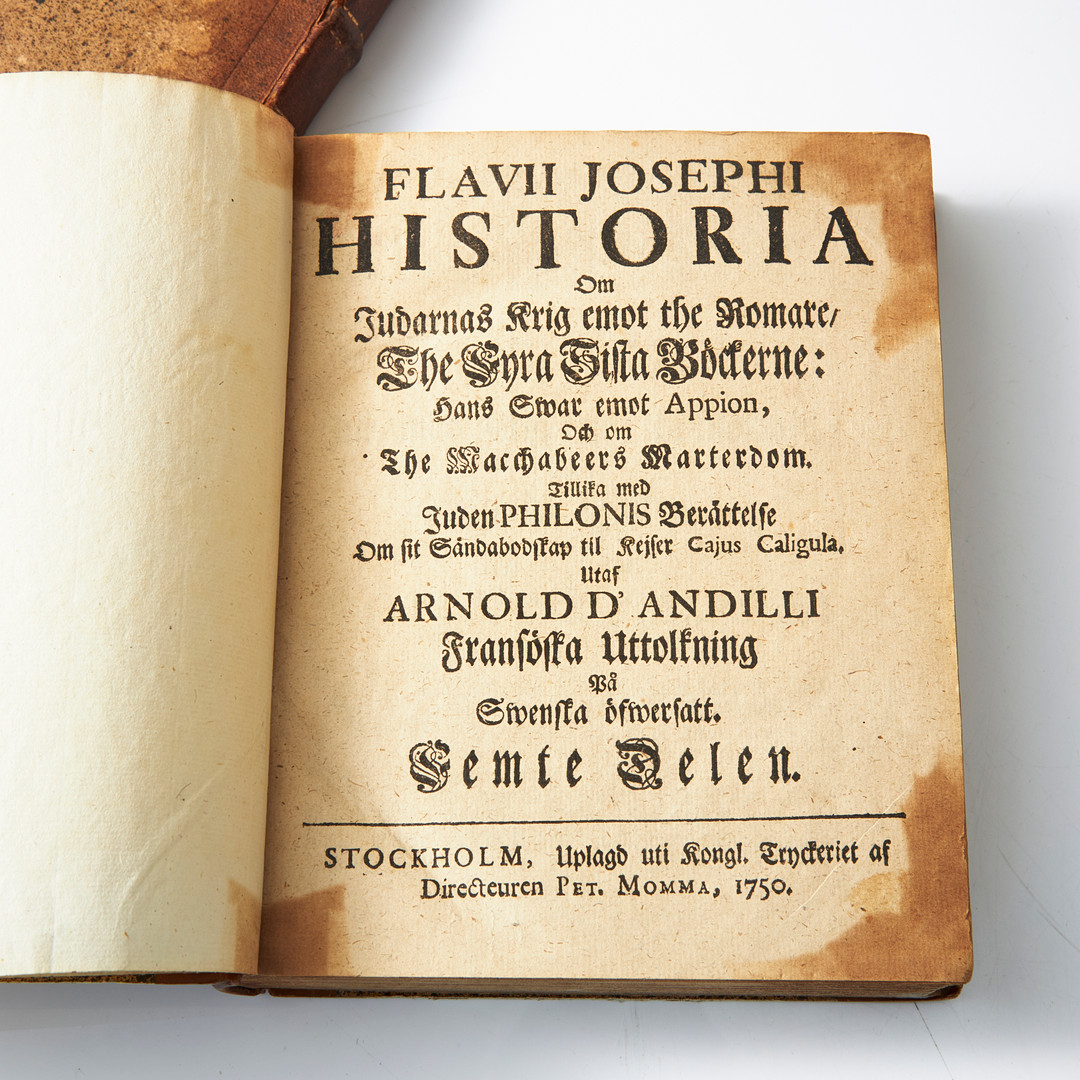 FLAVII JOSEPHI
HISTORIA
Om
Judarnas Krig emot the Romare/
The Fyra Sista Böckerne:
Hans Swar emot Appion,
Och om
The Macchabeers Marterdom.
Tillika med
Juden PHILONIS Berättelse
Om sit Sändabodskap til Kejser Cajus Caligula.
Utaf
ARNOLD D' ANDILLI
Fransöska Uttolkning
På
Swenska öfwersatt.
Femte Delen.
STOCKHOLM, Uplagd uti Kongl. Tryckeriet af
Directeuren PET. MOMMA, 1750.